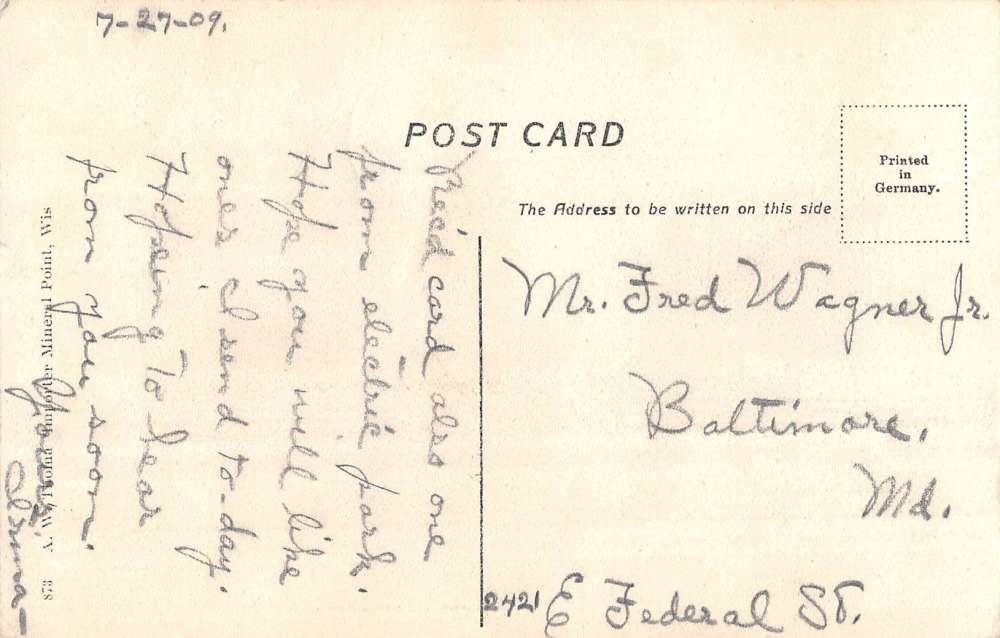 7-27-09.
POST CARD
Printed
in
Germany.
The Address to be written on this side
Rec'd card also one
from electric park.
Hope you will like
ones I send to-day.
Hopeing to hear
from you soon.
Yours
Irma-
Mr. Fred Wagner Jr.
Baltimore,
Md.
2421 E Federal St.
873 A. W. Importer Mineral Point, Wis